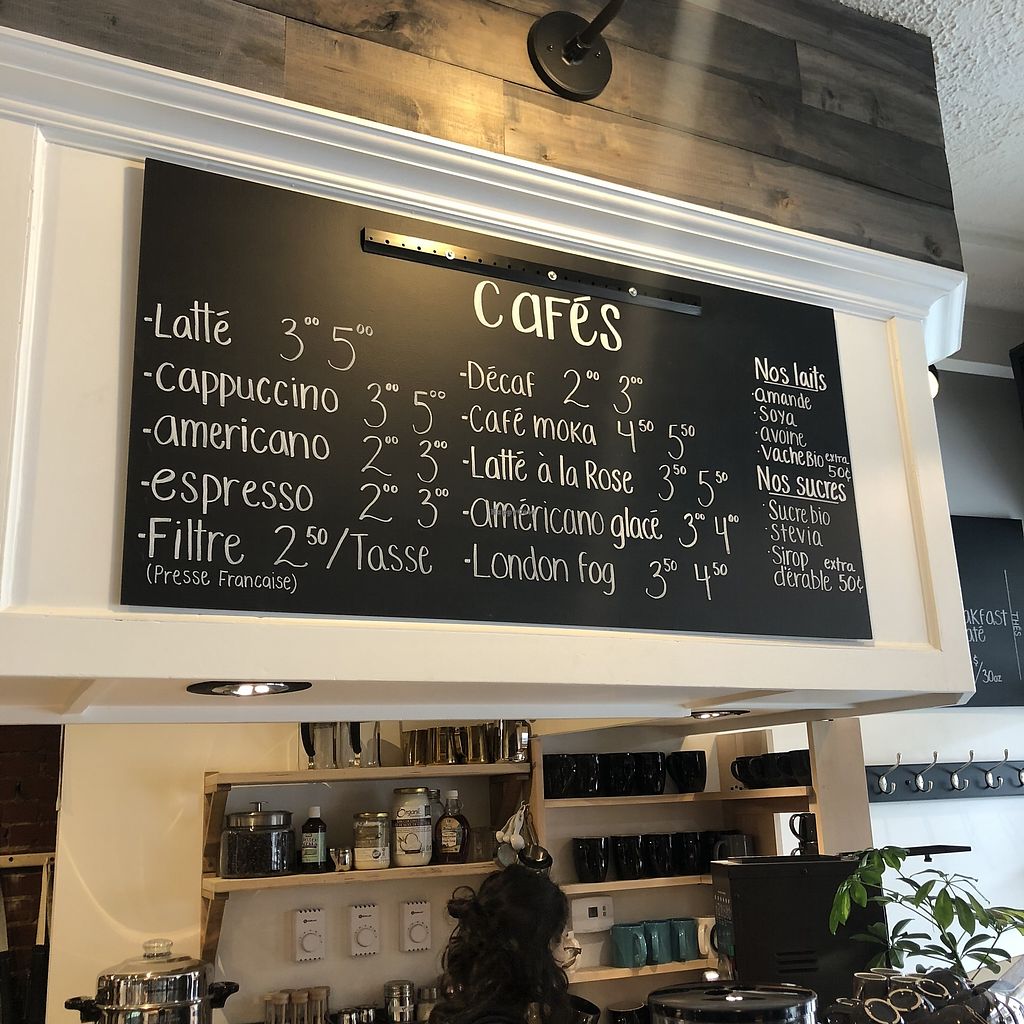 cafés
-Latté 3⁰⁰ 5⁰⁰
-cappuccino 3⁰⁰ 5⁰⁰
-americano 2⁰⁰ 3⁰⁰
-espresso 2⁰⁰ 3⁰⁰
-Filtre 2⁵⁰/Tasse
(Presse Francaise)
-Décaf 2⁰⁰ 3⁰⁰
-Café moka 4⁵⁰ 5⁵⁰
-Latté à la Rose 3⁵⁰ 5⁵⁰
-américano glacé 3⁰⁰ 4⁰⁰
-London fog 3⁵⁰ 4⁵⁰
Nos laits
·amande
·Soya
·avoine
·Vache Bio extra 50¢
Nos sucres
·Sucre bio
·stevia
·Sirop d'érable extra 50¢
akfast
THÉS
$/30oz